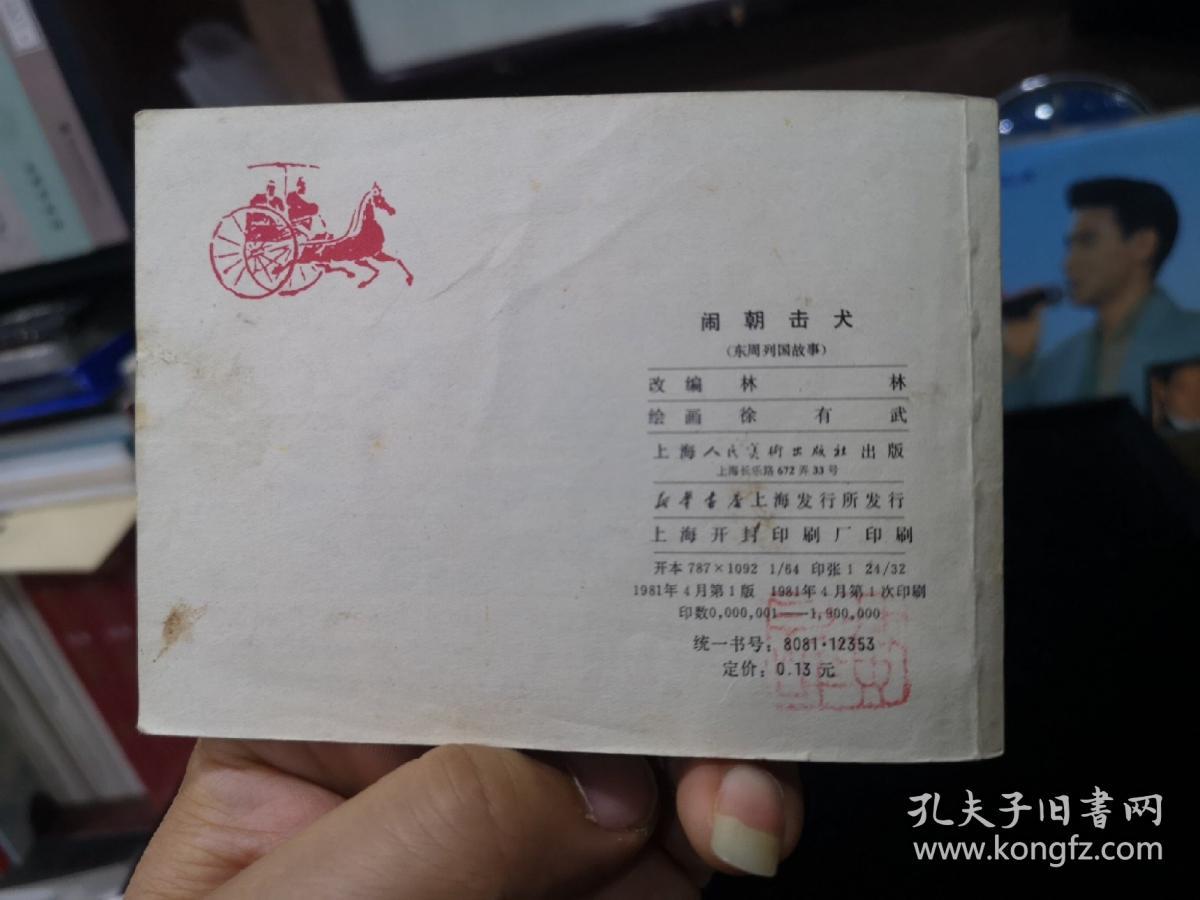 闹朝击犬
(东周列国故事)
改编 林 林
绘画 徐有武
上海人民美術出版社出版
上海长乐路672弄33号
新华書店上海发行所发行
上海开封印刷厂印刷
开本 787×1092 1/64 印张 1 24/32
1981年4月第1版 1981年4月第1次印刷
印数0,000,001——1,900,000
统一书号：8081·12353
定价：0.13元
孔夫子旧書网
www.kongfz.com